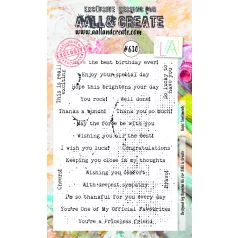 EXCLUSIVE DESIGNED FOR
AALL & CREATE
www.aallandcreate.com
#630
EXCLUSIVE
Have the best birthday ever!
This is really exciting
Enjoy your special day
So lucky to have you!
Hope this brightens your day
You rock!
Well done!
Thanks a bunch!
Thank you so much!
May the force be with you
Wishing you all the best!
I wish you luck!
Congratulations
Keeping you close in my thoughts
Cheers!
Wishing you comfort
With deepest sympathy
I'm so thankful for you every day
You're One of My Official Favourites
You're a Priceless friend